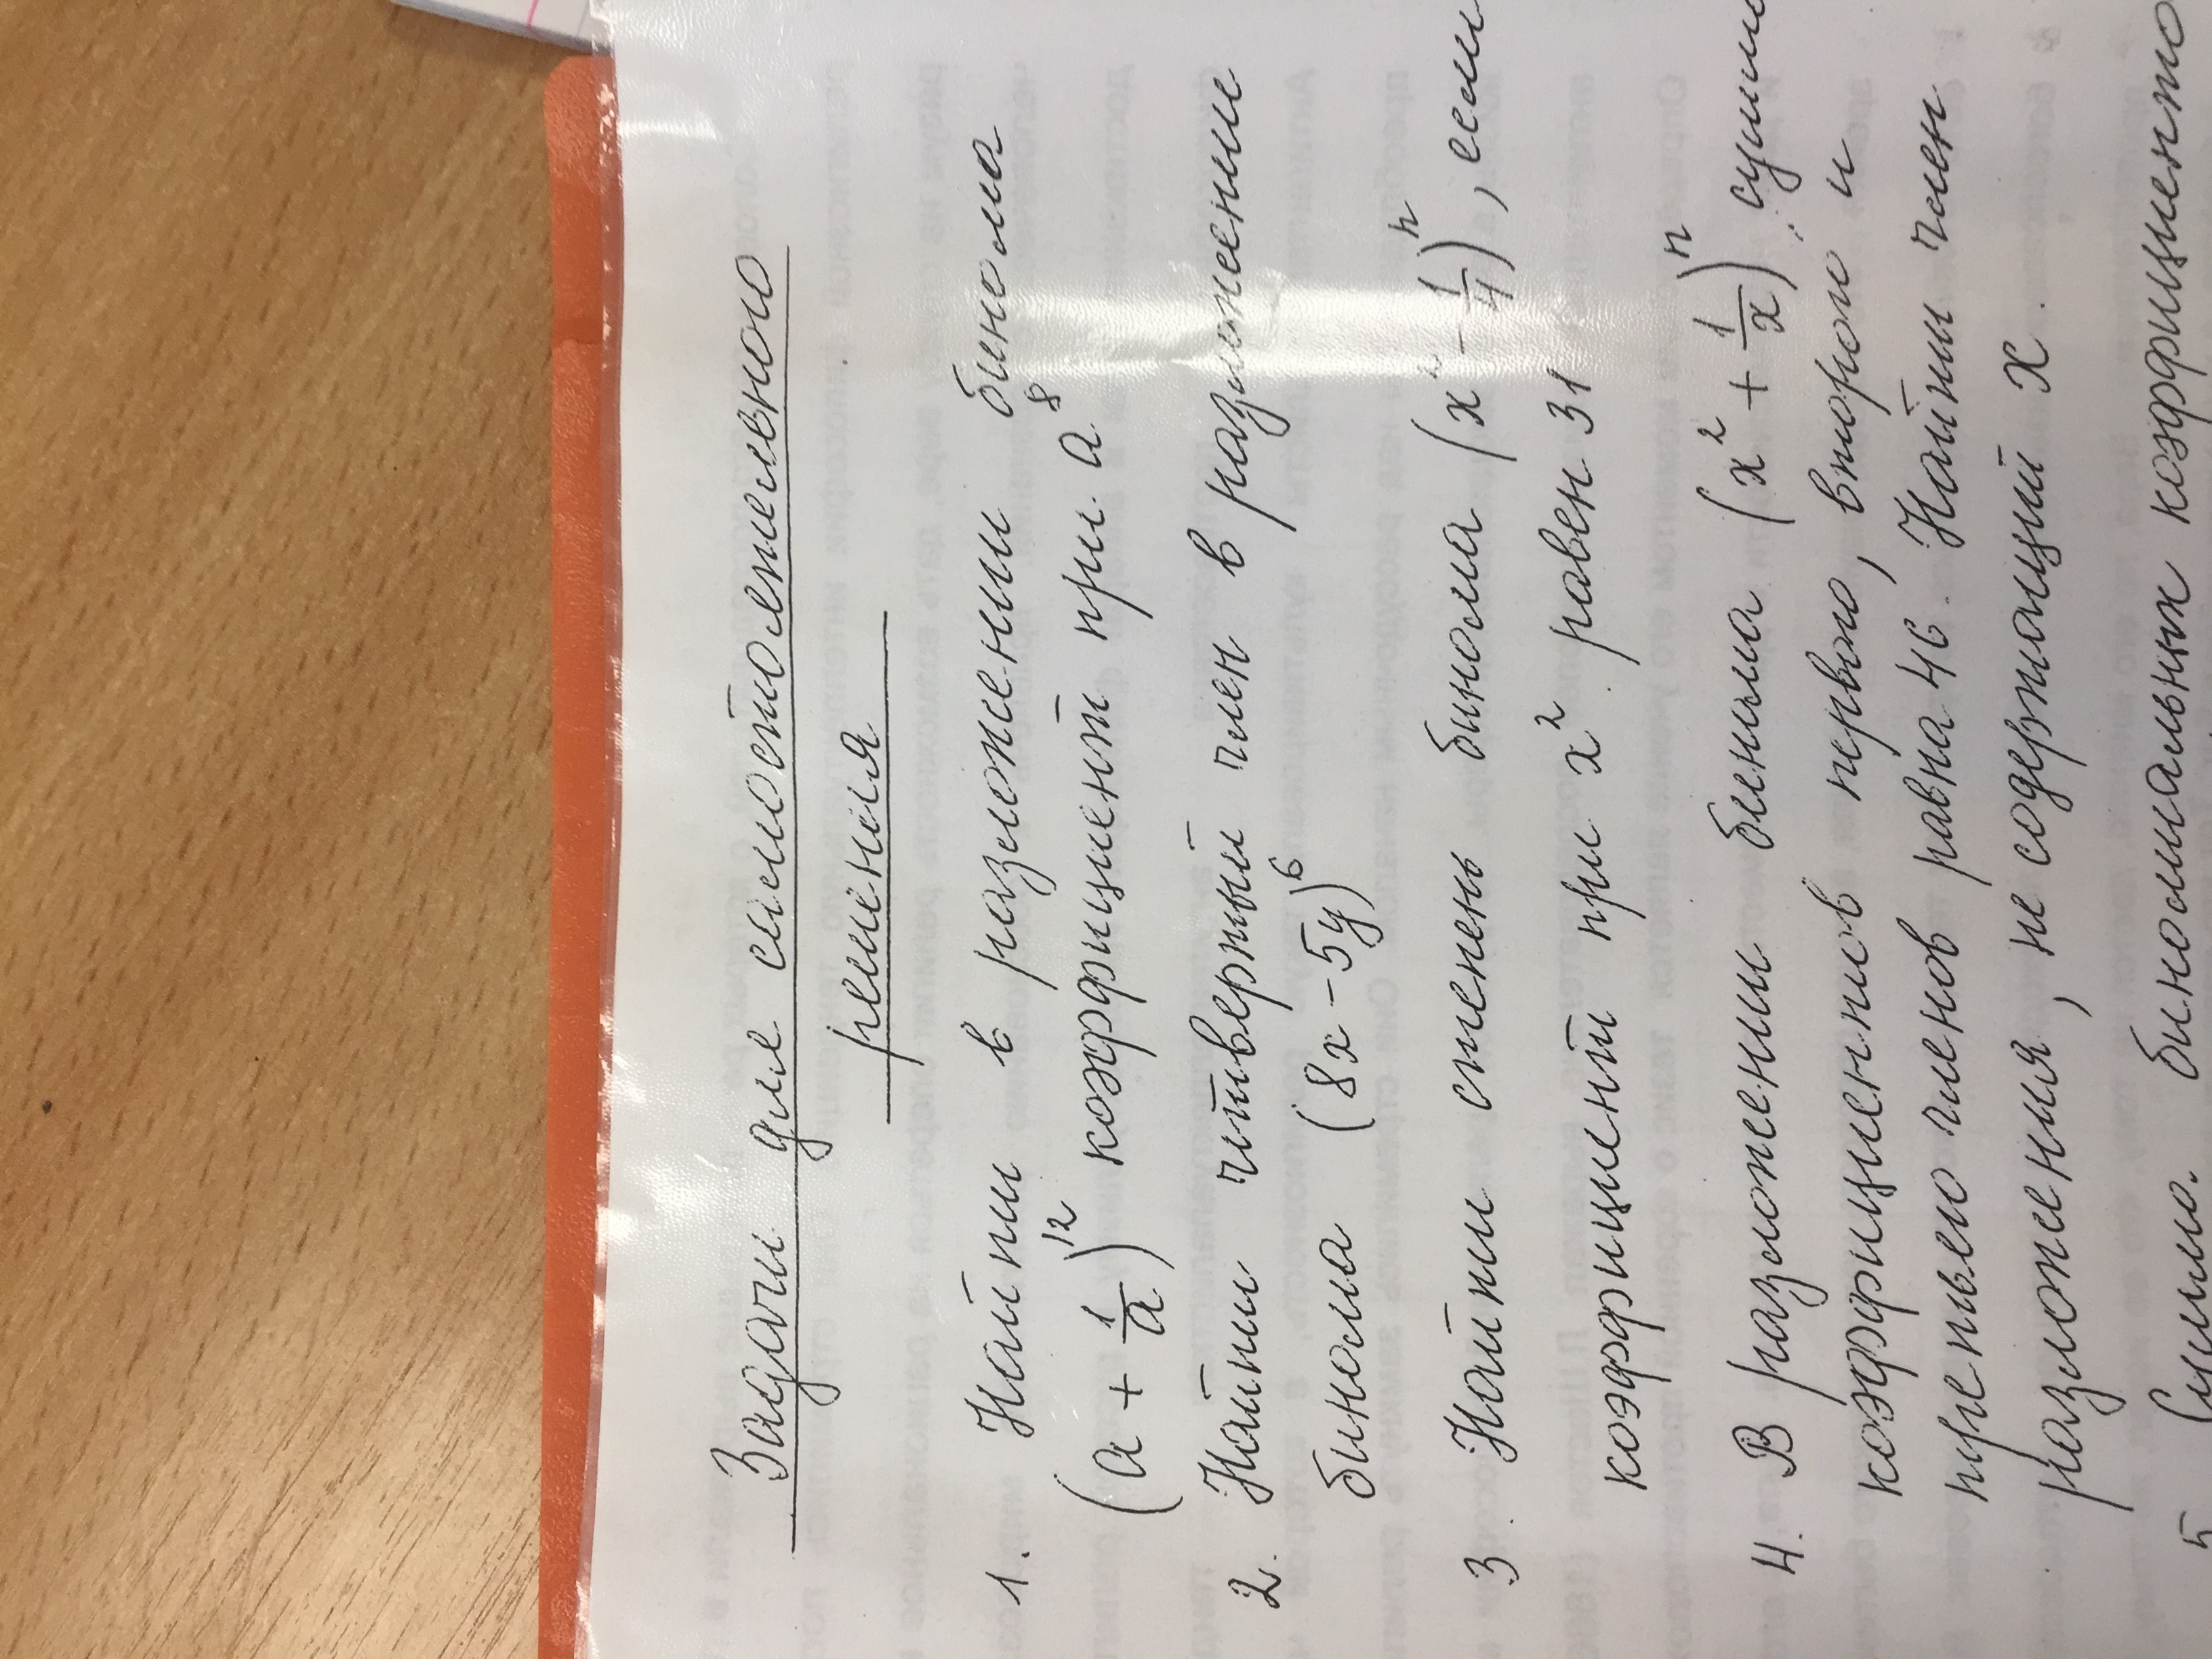 Задачи для самостоятельного
решения
1. Найти в разложении бинома
(a + 1/a)^12 коэффициент при a^8
2. Найти четвертый член в разложение
бинома (8x - 5y)^6
3. Найти степень бинома (x - 1/4)^n, если
коэффициент при x^2 равен 31
4. В разложении бинома (x^2 + 1/x)^n сумма
коэффициентов первого, второго и
третьего членов равна 46. Найти член
разложения, не содержащий x.
5 Сумма биномиальных коэффициентов